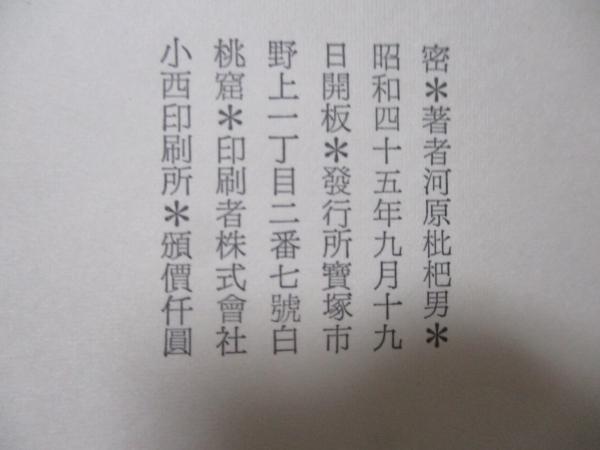 密＊著者河原枇杷男＊
昭和四十五年九月十九
日開板＊發行所寶塚市
野上一丁目二番七號白
桃窟＊印刷者株式會社
小西印刷所＊頒價仟圓